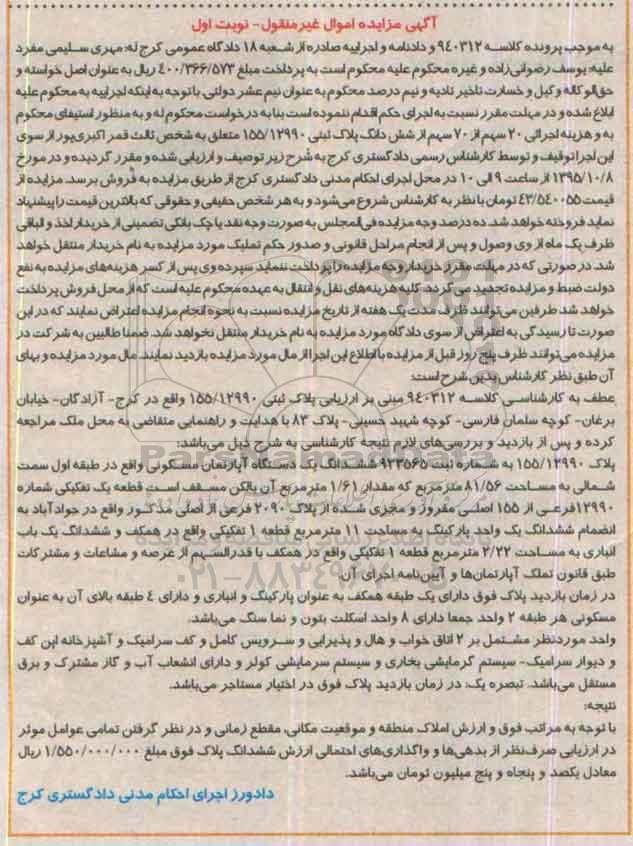 آگهی مزایده اموال غیرمنقول- نوبت اول
به موجب پرونده کلاسه ۹۴۰۳۱۲ و دادنامه و اجراییه صادره از شعبه ۱۸ دادگاه عمومی کرج له: مهری سلیمی مفرد
علیه: یوسف رضوانی‌زاده و غیره محکوم علیه محکوم است به پرداخت مبلغ ۴۰۰/۳۶۶/۵۷۳ ریال به عنوان اصل خواسته و
حق‌الوکاله وکیل و خسارت تاخیر تادیه و نیم درصد محکوم به عنوان نیم عشر دولتی. با توجه به اینکه اجراییه به محکوم علیه
ابلاغ شده و در مهلت مقرر نسبت به اجرای حکم اقدام ننموده است بنا به درخواست محکوم له و به منظور استیفای محکوم
به و هزینه اجرائی ۲۰ سهم از ۷۰ سهم از شش دانگ پلاک ثبتی ۱۵۵/۱۲۹۹۰ متعلق به شخص ثالث قمر اکبری‌پور از سوی
این اجرا توقیف و توسط کارشناس رسمی دادگستری کرج به شرح زیر توصیف و ارزیابی شده و مقرر گردیده و در مورخ
۱۳۹۵/۱۰/۸ از ساعت ۹ الی ۱۰ در محل اجرای احکام مدنی دادگستری کرج از طریق مزایده به فروش برسد. مزایده از
قیمت ۴۳/۵۴۰۰۵۵ تومان با نظر به کارشناس شروع می‌شود و به هر شخص حقیقی و حقوقی که بالاترین قیمت را پیشنهاد
نماید فروخته خواهد شد. ده درصد وجه مزایده فی‌المجلس به صورت وجه نقد یا چک بانکی تضمینی از خریدار اخذ و الباقی
ظرف یک ماه از وی وصول و پس از انجام مراحل قانونی و صدور حکم تملیک مورد مزایده به نام خریدار منتقل خواهد
شد. در صورتی که در مهلت مقرر خریدار وجه مزایده را پرداخت ننماید سپرده وی پس از کسر هزینه‌های مزایده به نفع
دولت ضبط و مزایده تجدید می‌گردد. کلیه هزینه‌های نقل و انتقال به عهده محکوم علیه است که از محل فروش پرداخت
خواهد شد. طرفین می‌توانند ظرف مدت یک هفته از تاریخ مزایده نسبت به نحوه انجام مزایده اعتراض نمایند که در این
صورت تا رسیدگی به اعتراض از سوی دادگاه مورد مزایده به نام خریدار منتقل نخواهد شد. ضمنا طالبین به شرکت در
مزایده می‌توانند ظرف پنج روز قبل از مزایده با اطلاع این اجرا از مال مورد مزایده بازدید نمایند. مال مورد مزایده و بهای
آن طبق نظر کارشناس بدین شرح است:
عطف به کارشناسی کلاسه ۹۴۰۳۱۲ مبنی بر ارزیابی پلاک ثبتی ۱۵۵/۱۲۹۹۰ واقع در کرج- آزادگان- خیابان
برغان- کوچه سلمان فارسی- کوچه شهید حسینی- پلاک ۸۳ با هدایت و راهنمایی متقاضی به محل ملک مراجعه
کرده و پس از بازدید و بررسی‌های لازم نتیجه کارشناسی به شرح ذیل می‌باشد:
پلاک ۱۵۵/۱۲۹۹۰ به شماره ثبت ۹۲۳۵۶۵ ششدانگ یک دستگاه آپارتمان مسکونی واقع در طبقه اول سمت
شمالی به مساحت ۸۱/۵۶ مترمربع که مقدار ۱/۶۱ مترمربع آن بالکن مسقف است قطعه یک تفکیکی شماره
۱۲۹۹۰ فرعی از ۱۵۵ اصلی مفروز و مجزی شده از پلاک ۲۰۹۰ فرعی از اصلی مذکور واقع در جوادآباد به
انضمام ششدانگ یک واحد پارکینگ به مساحت ۱۱ مترمربع قطعه ۱ تفکیکی واقع در همکف و ششدانگ یک باب
انباری به مساحت ۲/۲۲ مترمربع قطعه ۱ تفکیکی واقع در همکف با قدرالسهم از عرصه و مشاعات و مشترکات
طبق قانون تملک آپارتمان‌ها و آیین‌نامه اجرای آن.
در زمان بازدید پلاک فوق دارای یک طبقه همکف به عنوان پارکینگ و انباری و دارای ۴ طبقه بالای آن به عنوان
مسکونی هر طبقه ۲ واحد جمعا دارای ۸ واحد اسکلت بتون و نما سنگ می‌باشد.
واحد موردنظر مشتمل بر ۲ اتاق خواب و هال و پذیرایی و سرویس کامل و کف سرامیک و آشپزخانه اپن کف
و دیوار سرامیک- سیستم گرمایشی بخاری و سیستم سرمایشی کولر و دارای انشعاب آب و گاز مشترک و برق
مستقل می‌باشد. تبصره یک: در زمان بازدید پلاک فوق در اختیار مستاجر می‌باشد.
نتیجه:
با توجه به مراتب فوق و ارزش املاک منطقه و موقعیت مکانی، مقطع زمانی و در نظر گرفتن تمامی عوامل موثر
در ارزیابی صرف‌نظر از بدهی‌ها و واگذاری‌های احتمالی ارزش ششدانگ پلاک فوق مبلغ ۱/۵۵۰/۰۰۰/۰۰۰ ریال
معادل یکصد و پنجاه و پنج میلیون تومان می‌باشد.
دادورز اجرای احکام مدنی دادگستری کرج
ParsNamadData
۰۲۱-۸۸۳۴۹۶